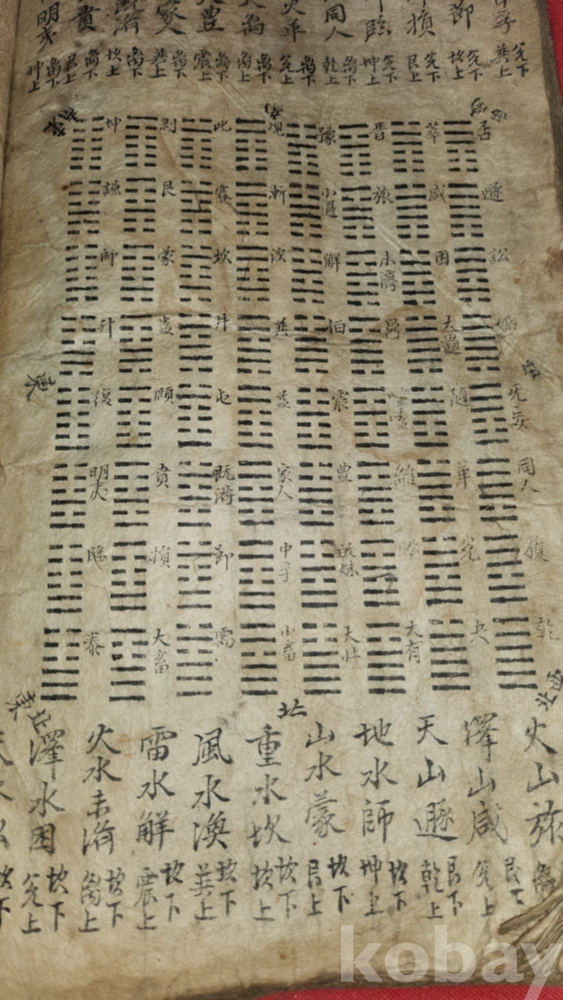 中孚
兌下
巽上
節
兌下
坎上
損
兌下
艮上
臨
兌下
坤上
同人
离下
乾上
火革
离下
兌上
离下
离上
豐
离下
震上
家人
离下
巽上
既濟
离下
坎上
賁
离下
艮上
明夷
离下
坤上
否 萃 晋 豫 观 比 剥 坤
遯 咸 旅 小過 漸 蹇 艮 謙
訟 困 未濟 解 渙 坎 蒙 師
姤 大過 鼎 恒 巽 井 蠱 升
東
无妄 隨 噬嗑 震 益 屯 頤 復
同人 革 離 豐 家人 既濟 賁 明夷
履 兌 睽 歸妹 中孚 節 損 臨
乾 夬 大有 大壯 小畜 需 大畜 泰
西北
北
東北
火山旅
艮下
离上
澤山咸
艮下
兌上
天山遯
艮下
乾上
地水師
坎下
坤上
山水蒙
坎下
艮上
重水坎
坎下
坎上
風水渙
坎下
巽上
雷水解
坎下
震上
火水未濟
坎下
离上
澤水困
坎下
兌上
水訟
坎下
kobay